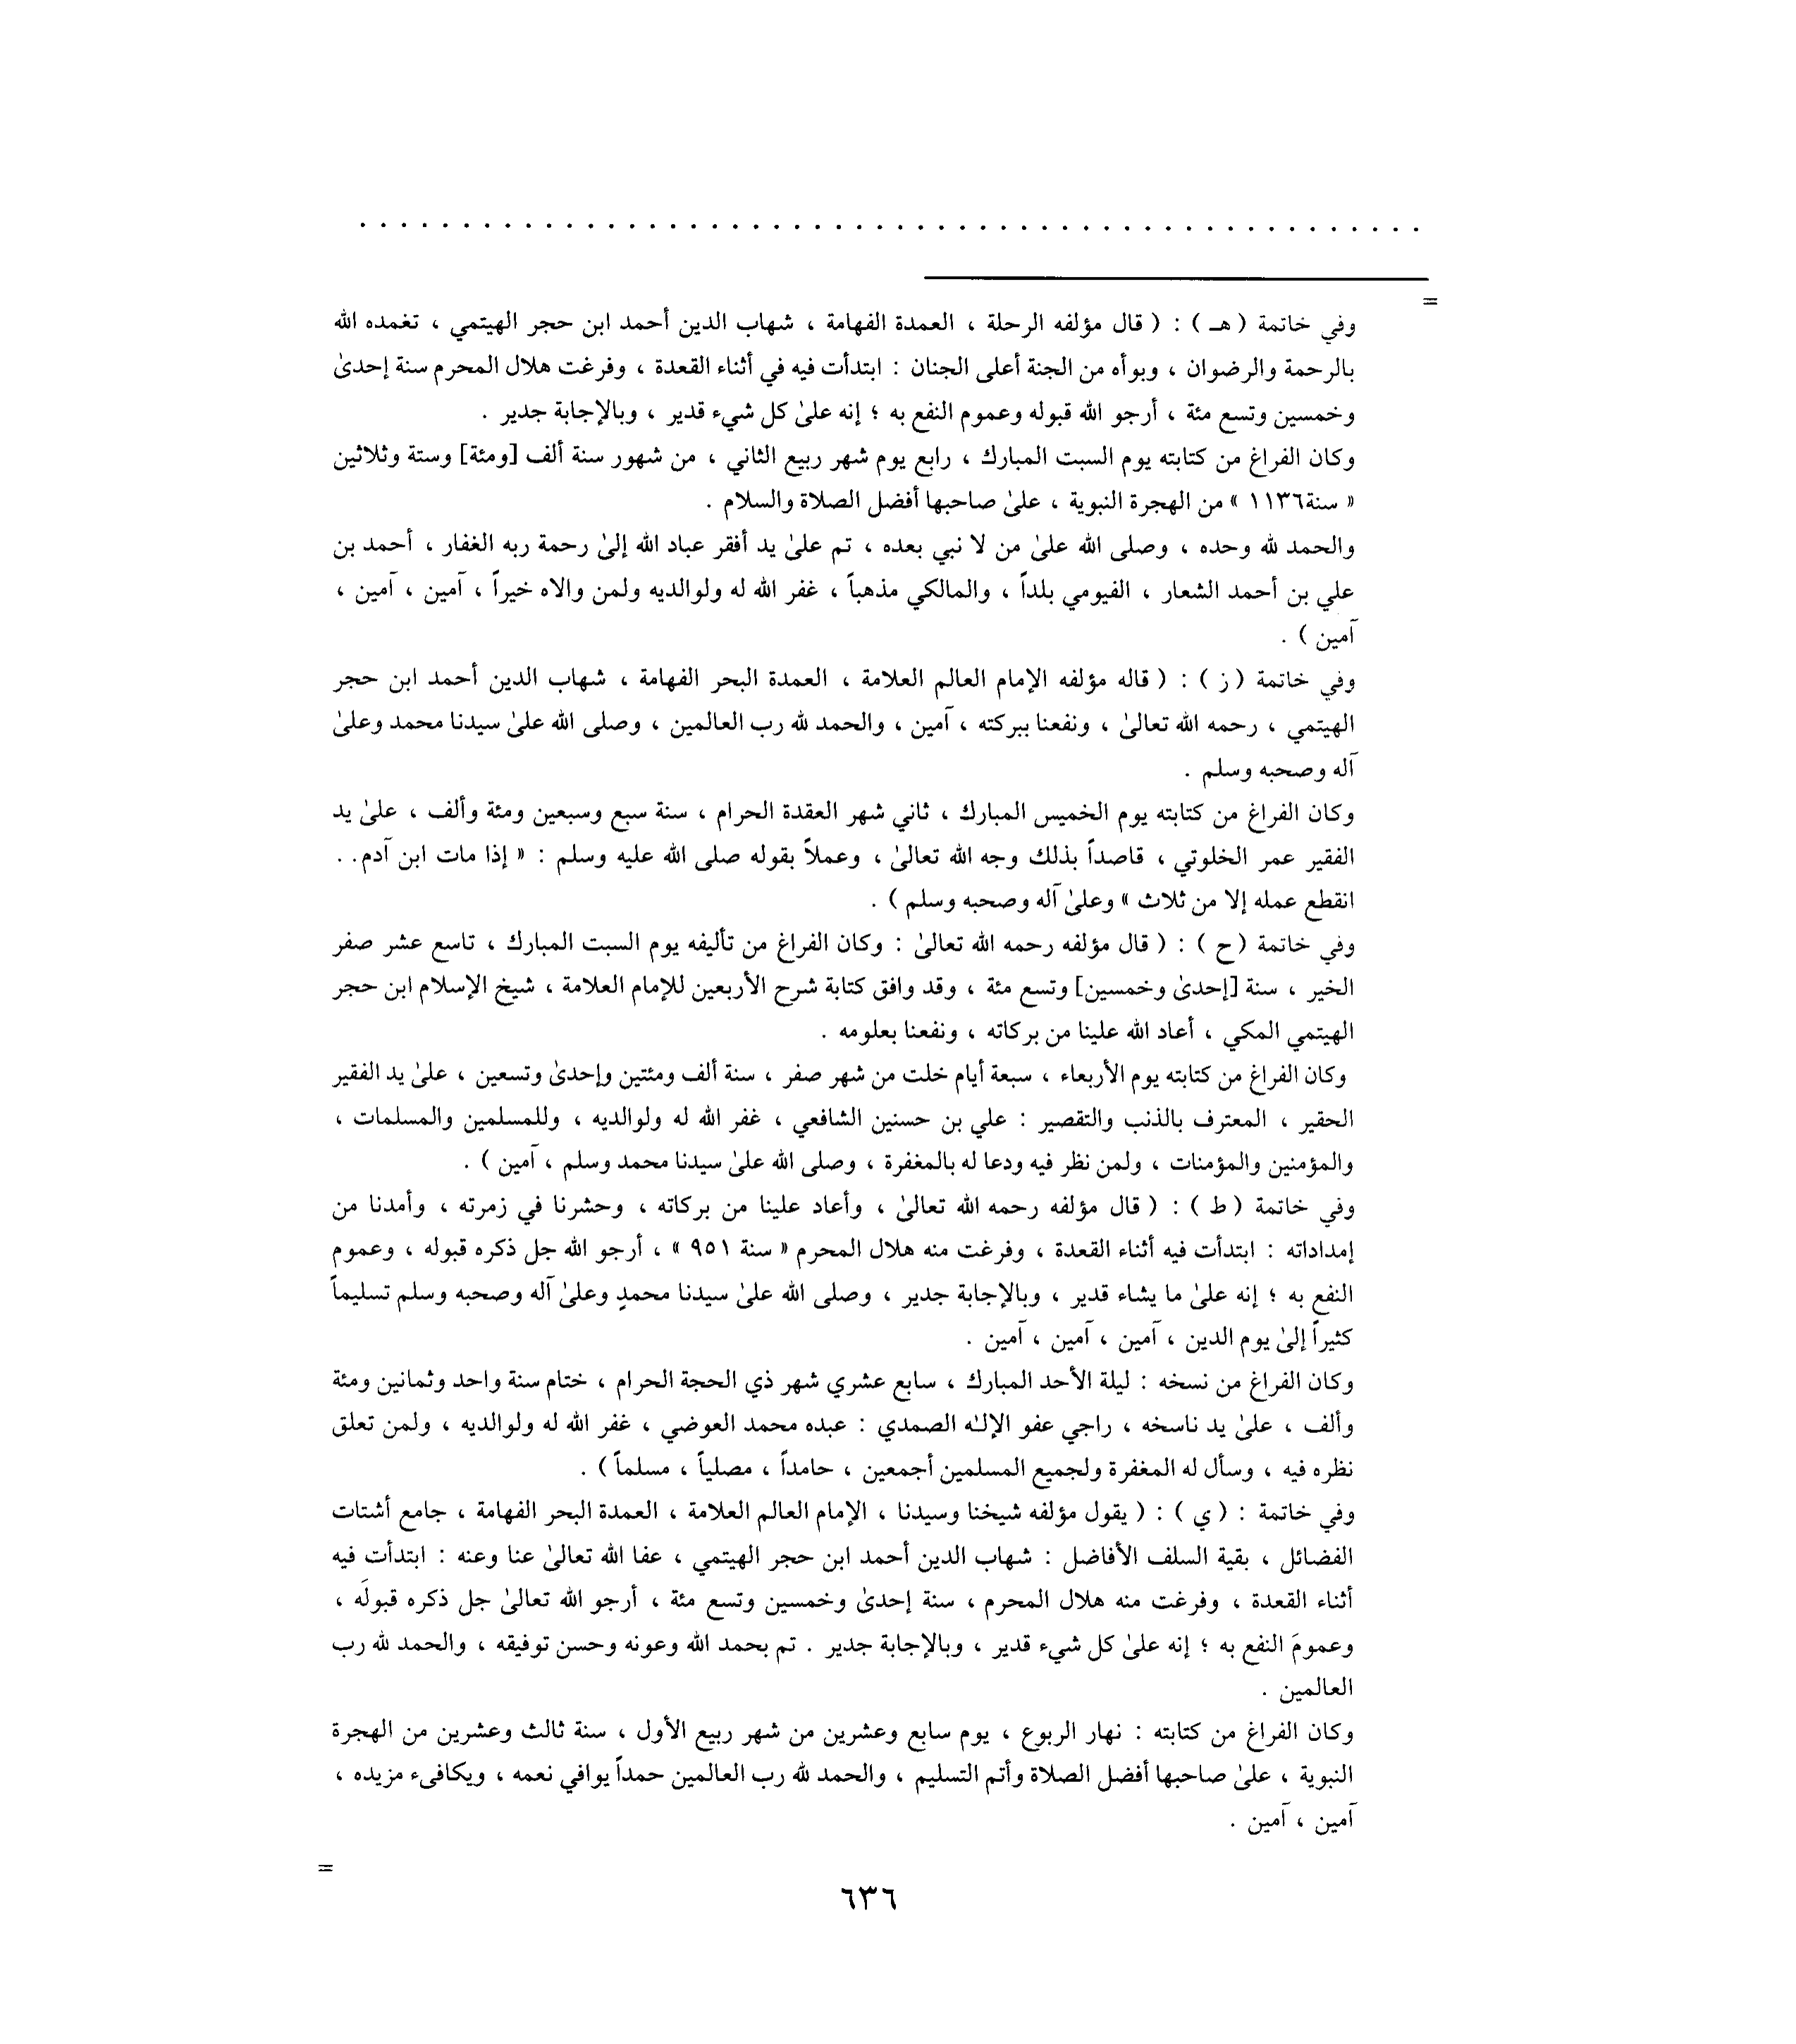 . . . . . . . . . . . . . . . . . . . . . . . . . . . . . . . . . . . . . . . . . . . . . . . . . . . .
=
وفي خاتمة ( هـ ) : ( قال مؤلفه الرحلة ، العمدة الفهامة ، شهاب الدين أحمد ابن حجر الهيتمي ، تغمده الله
بالرحمة والرضوان ، وبوأه من الجنة أعلى الجنان : ابتدأت فيه في أثناء القعدة ، وفرغت هلال المحرم سنة إحدىٰ
وخمسين وتسع مئة ، أرجو الله قبوله وعموم النفع به ؛ إنه علىٰ كل شيء قدير ، وبالإجابة جدير .
وكان الفراغ من كتابته يوم السبت المبارك ، رابع يوم شهر ربيع الثاني ، من شهور سنة ألف [ومئة] وستة وثلاثين
« سنة١١٣٦ » من الهجرة النبوية ، علىٰ صاحبها أفضل الصلاة والسلام .
والحمد لله وحده ، وصلى الله علىٰ من لا نبي بعده ، تم علىٰ يد أفقر عباد الله إلىٰ رحمة ربه الغفار ، أحمد بن
علي بن أحمد الشعار ، الفيومي بلداً ، والمالكي مذهباً ، غفر الله له ولوالديه ولمن والاه خيراً ، آمين ، آمين ،
آمين ) .
وفي خاتمة ( ز ) : ( قاله مؤلفه الإمام العالم العلامة ، العمدة البحر الفهامة ، شهاب الدين أحمد ابن حجر
الهيتمي ، رحمه الله تعالىٰ ، ونفعنا ببركته ، آمين ، والحمد لله رب العالمين ، وصلى الله علىٰ سيدنا محمد وعلىٰ
آله وصحبه وسلم .
وكان الفراغ من كتابته يوم الخميس المبارك ، ثاني شهر العقدة الحرام ، سنة سبع وسبعين ومئة وألف ، علىٰ يد
الفقير عمر الخلوتي ، قاصداً بذلك وجه الله تعالىٰ ، وعملاً بقوله صلى الله عليه وسلم : « إذا مات ابن آدم . .
انقطع عمله إلا من ثلاث » وعلىٰ آله وصحبه وسلم ) .
وفي خاتمة ( ح ) : ( قال مؤلفه رحمه الله تعالىٰ : وكان الفراغ من تأليفه يوم السبت المبارك ، تاسع عشر صفر
الخير ، سنة [إحدىٰ وخمسين] وتسع مئة ، وقد وافق كتابة شرح الأربعين للإمام العلامة ، شيخ الإسلام ابن حجر
الهيتمي المكي ، أعاد الله علينا من بركاته ، ونفعنا بعلومه .
وكان الفراغ من كتابته يوم الأربعاء ، سبعة أيام خلت من شهر صفر ، سنة ألف ومئتين وإحدىٰ وتسعين ، علىٰ يد الفقير
الحقير ، المعترف بالذنب والتقصير : علي بن حسنين الشافعي ، غفر الله له ولوالديه ، وللمسلمين والمسلمات ،
والمؤمنين والمؤمنات ، ولمن نظر فيه ودعا له بالمغفرة ، وصلى الله علىٰ سيدنا محمد وسلم ، آمين ) .
وفي خاتمة ( ط ) : ( قال مؤلفه رحمه الله تعالىٰ ، وأعاد علينا من بركاته ، وحشرنا في زمرته ، وأمدنا من
إمداداته : ابتدأت فيه أثناء القعدة ، وفرغت منه هلال المحرم « سنة ٩٥١ » ، أرجو الله جل ذكره قبوله ، وعموم
النفع به ؛ إنه علىٰ ما يشاء قدير ، وبالإجابة جدير ، وصلى الله علىٰ سيدنا محمدٍ وعلىٰ آله وصحبه وسلم تسليماً
كثيراً إلىٰ يوم الدين ، آمين ، آمين ، آمين .
وكان الفراغ من نسخه : ليلة الأحد المبارك ، سابع عشري شهر ذي الحجة الحرام ، ختام سنة واحد وثمانين ومئة
وألف ، علىٰ يد ناسخه ، راجي عفو الإلـٰه الصمدي : عبده محمد العوضي ، غفر الله له ولوالديه ، ولمن تعلق
نظره فيه ، وسأل له المغفرة ولجميع المسلمين أجمعين ، حامداً ، مصلياً ، مسلماً ) .
وفي خاتمة : ( ي ) : ( يقول مؤلفه شيخنا وسيدنا ، الإمام العالم العلامة ، العمدة البحر الفهامة ، جامع أشتات
الفضائل ، بقية السلف الأفاضل : شهاب الدين أحمد ابن حجر الهيتمي ، عفا الله تعالىٰ عنا وعنه : ابتدأت فيه
أثناء القعدة ، وفرغت منه هلال المحرم ، سنة إحدىٰ وخمسين وتسع مئة ، أرجو الله تعالىٰ جل ذكره قبولَه ،
وعمومَ النفع به ؛ إنه علىٰ كل شيء قدير ، وبالإجابة جدير . تم بحمد الله وعونه وحسن توفيقه ، والحمد لله رب
العالمين .
وكان الفراغ من كتابته : نهار الربوع ، يوم سابع وعشرين من شهر ربيع الأول ، سنة ثالث وعشرين من الهجرة
النبوية ، علىٰ صاحبها أفضل الصلاة وأتم التسليم ، والحمد لله رب العالمين حمداً يوافي نعمه ، ويكافىء مزيده ،
آمين ، آمين .
=
٦٣٦